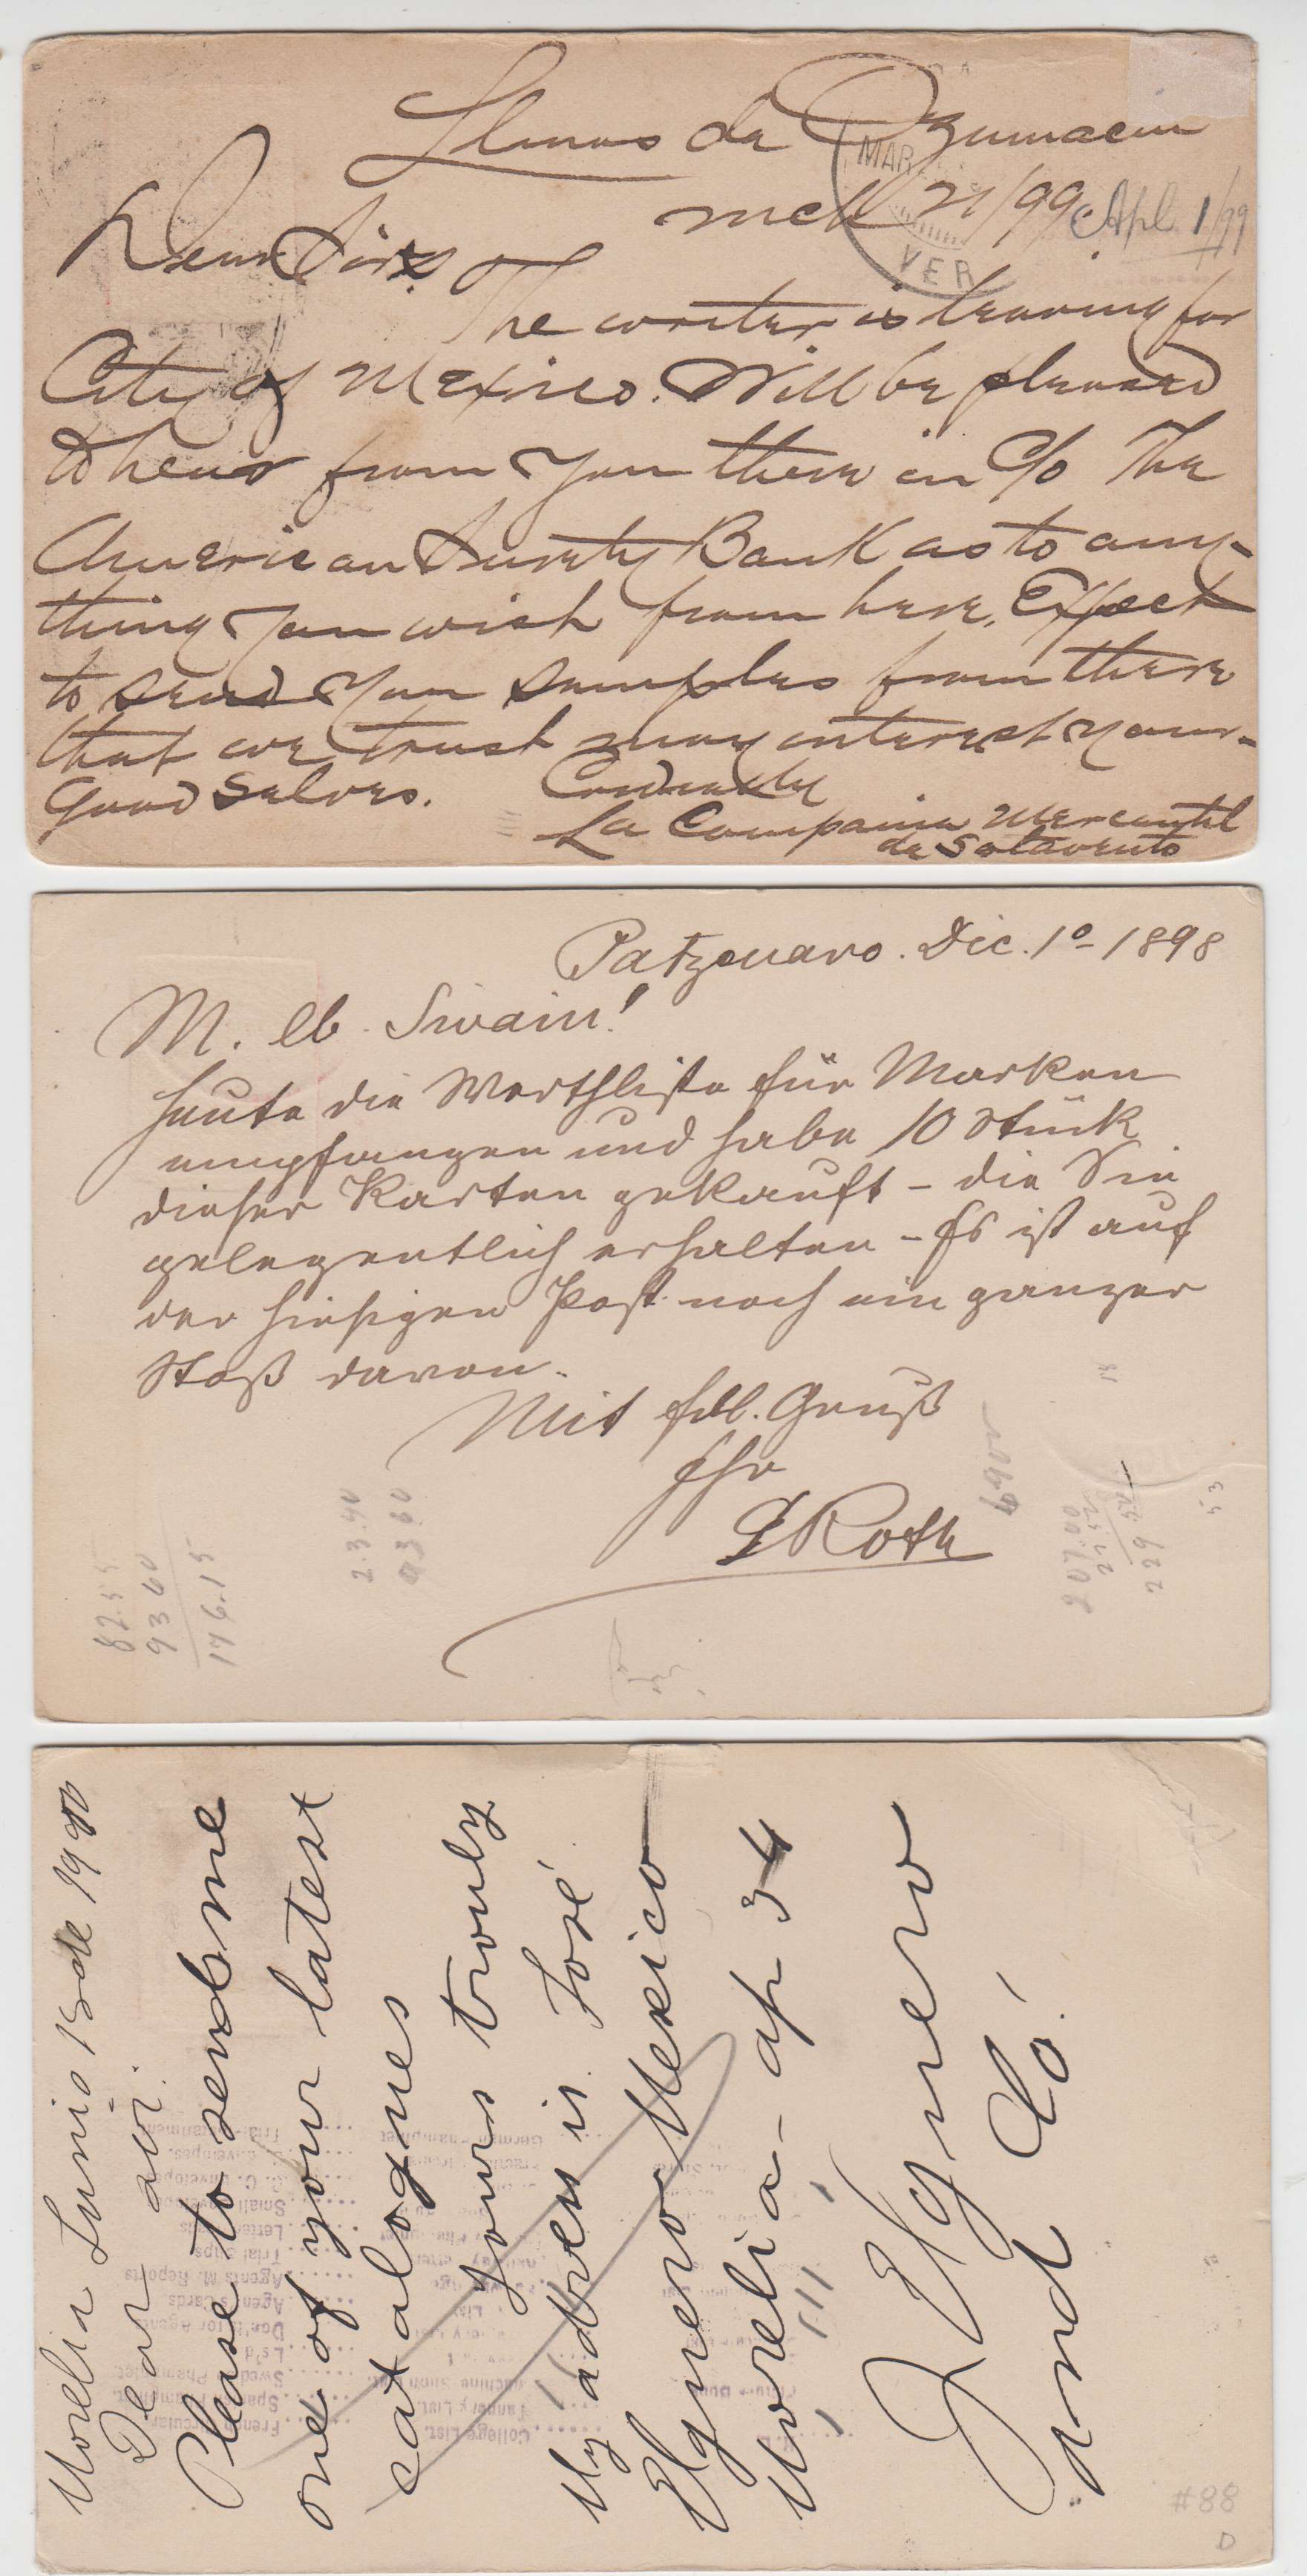 Llanos de Ozumacin
Mch 21/99. Apl 1/99
MAR
VER
Dear Sirs. The writer is leaving for
City of Mexico. Will be pleased
to hear from you there in c/o The
American Surety Bank as to any-
thing you wish from here. Expect
to send you samples from there
that we trust may interest your-
good selves. Cordially
La Compania Mercantil
de Sotavento
Patzcuaro. Dic. 1º 1898
M. Eb. Swain!
heute die Werthliste für Marken
empfangen und habe 10 Stück
dieser Karten gekauft – die Sie
gelegentlich erhalten – Es ist auf
der hiesigen Post noch ein ganzer
Stoß davon.
Mit fdl. Gruß
Ihr
Roth
82.55
93 60
176.15
23.40
93 60
6900
207.00
22 52
229 52
53
Morelia Junio 15 de 1900
Dear sir.
Please to send me
one of your latest
catalogues
yours trouly
My adress is José
Elguero Mexico
Morelia – ap 34
J Elguero
and Co.
College List
Tannery List
Machine Shop
French Circular
Agents Cards
Agents M. Reports
Trial Slips
Letter
Small
#88
D